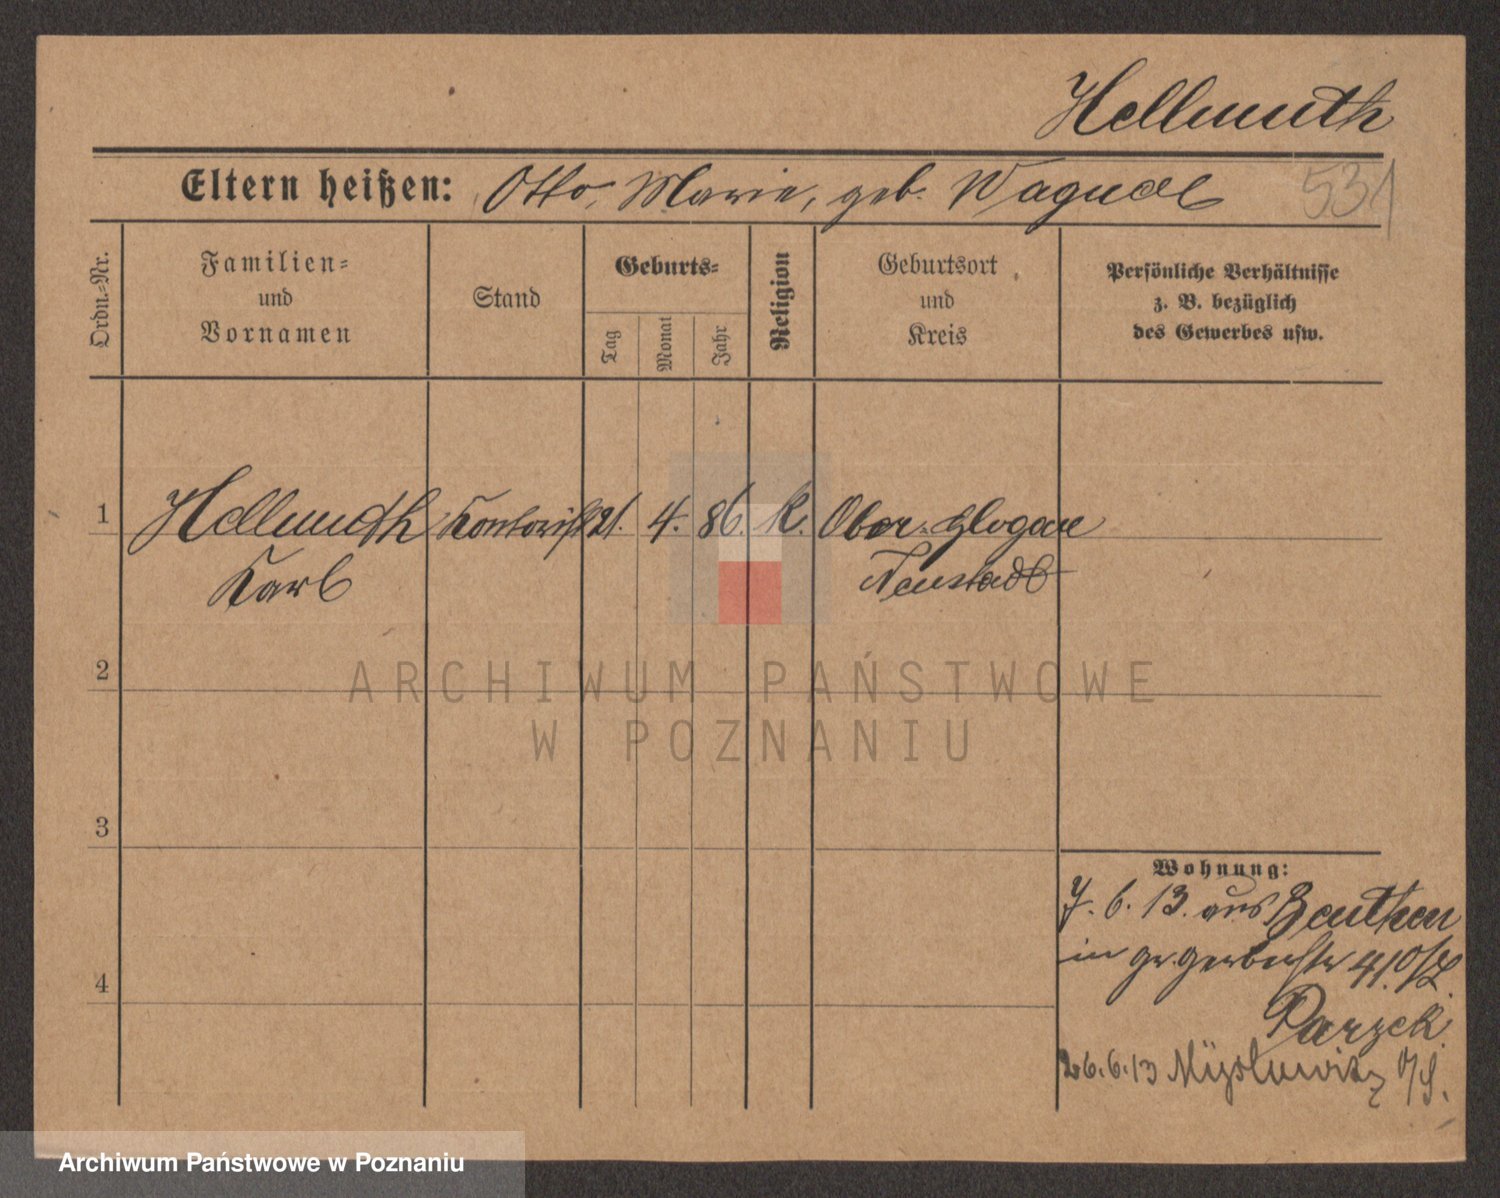 Hellmuth
Eltern heißen: Otto, Marie, geb. Wagner
531
Ordn.-Nr.
Familien-
und
Vornamen
Stand
Geburts-
Tag
Monat
Jahr
Religion
Geburtsort
und
Kreis
Persönliche Verhältnisse
z. B. bezüglich
des Gewerbes usw.
1 Hellmuth Kontorist 21. 4. 86. k. Ober-Glogau
Karl Neustadt
2
ARCHIWUM PAŃSTWOWE
W POZNANIU
3
Wohnung:
7. 6. 13. aus Beuthen
in gr. gerberstr 41
4
26.6.13 Myslowitz O/S.
Archiwum Państwowe w Poznaniu